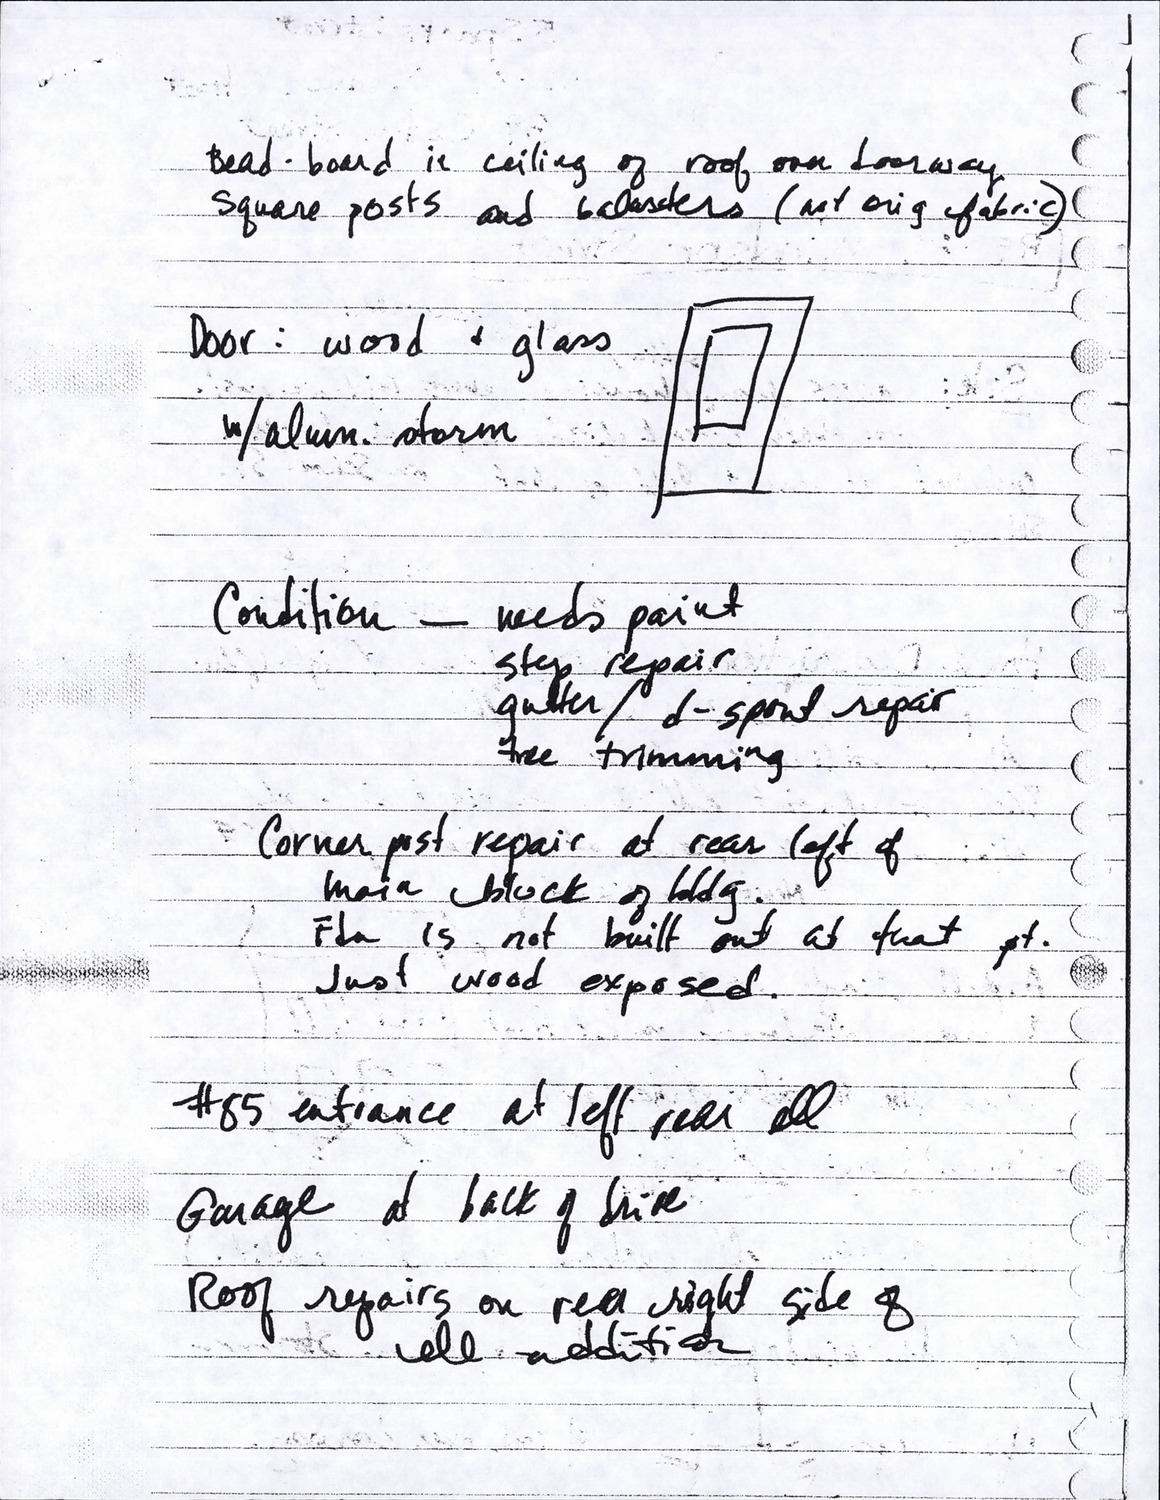 Bead-board in ceiling of roof over doorway
Square posts and balusters (not orig fabric)
Door: wood + glass
w/alum. storm
Condition — needs paint
step repair
gutter/ d-spout repair
tree trimming
Corner post repair at rear left of
main block of bldg.
Fdn is not built out at that pt.
Just wood exposed.
#85 entrance at left rear ell
Garage at back of drive
Roof repairs on rear right side of
ell addition